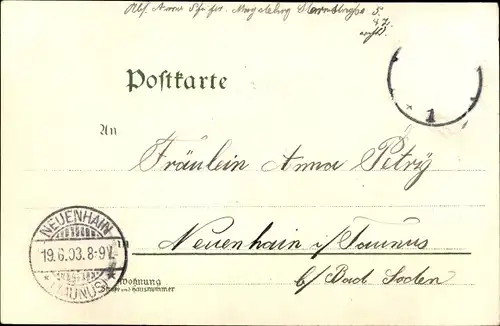 Magdeburg Sternstraße 5
Postkarte
An
1
Fräulein Anna Petry
Neuenhain i/Taunus
b/ Bad Soden
NEUENHAIN
19.6.03. 8-9V.
* (TAUNUS) *
in
Wohnung
Straße und Hausnummer